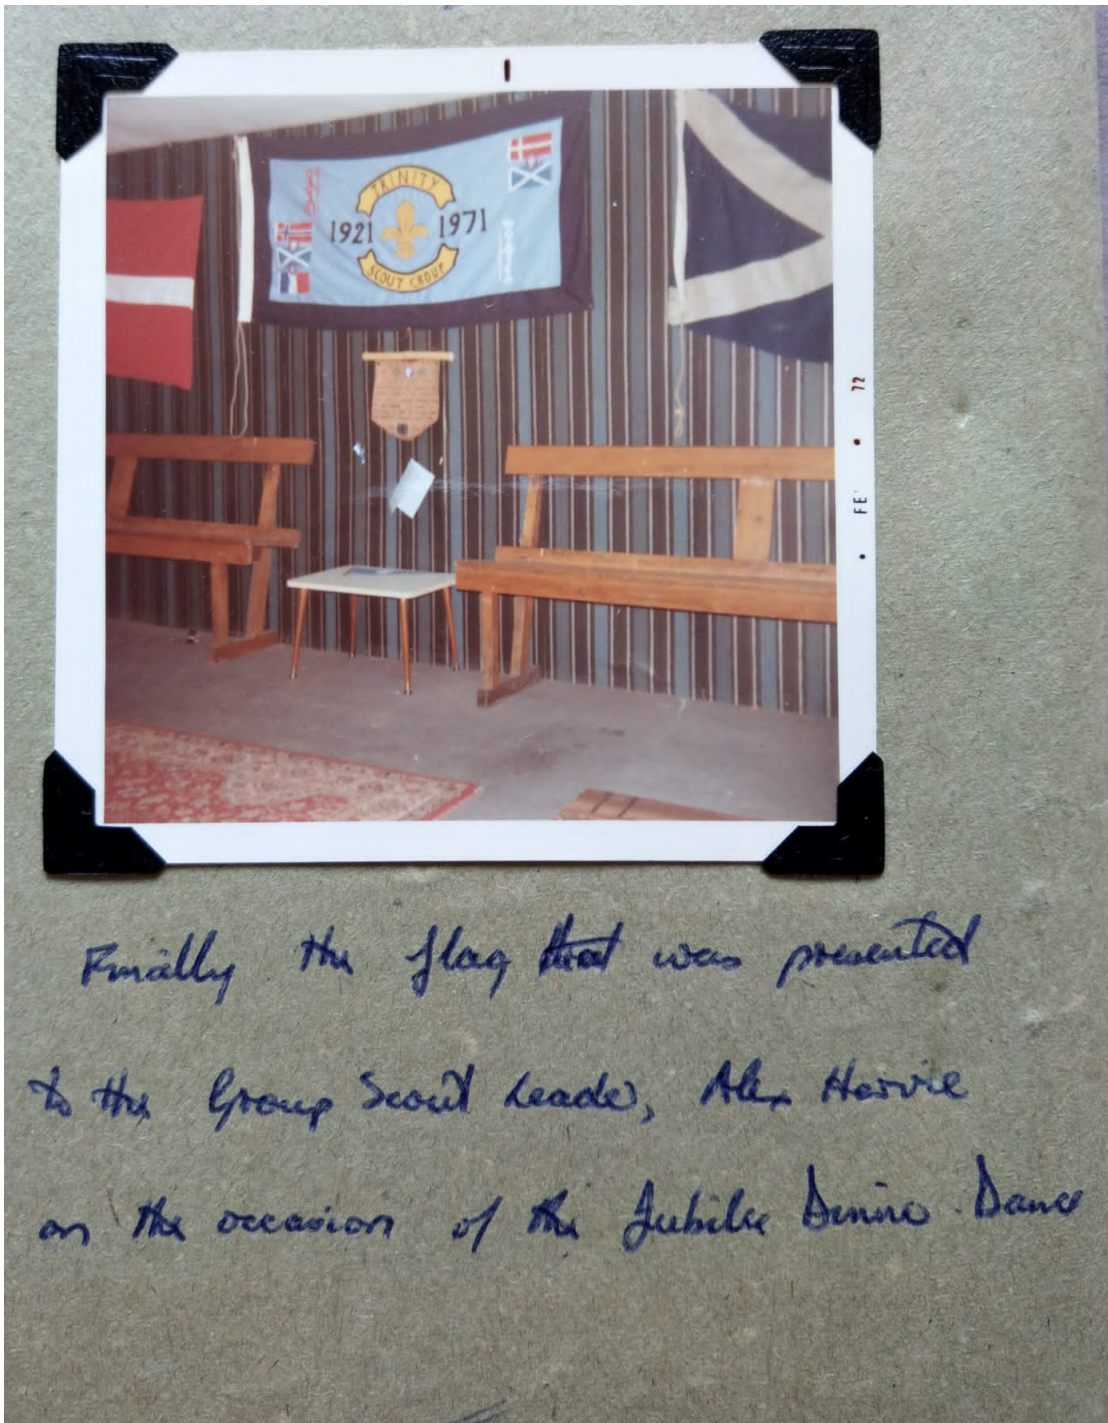 TRINITY
1921 1971
SCOUT GROUP
• FE' • 72
Finally the flag that was presented
to the Group Scout Leader, Alex Harvie
on the occasion of the Jubilee Dinner Dance